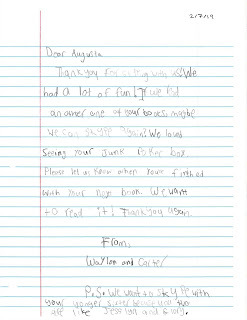 2/7/19
Dear Augusta
Thank you for skyping with us! We
had a lot of fun! If we buy
another one of your books, maybe
we can skype again! We loved
seeing your Junk Poker box.
Please let us know when your finished
with your next book. We want
to read it! Thank you again.
From,
Waylon and Carter
P.S. We want to skype with
your younger sister because you two
are like Jessilyn and